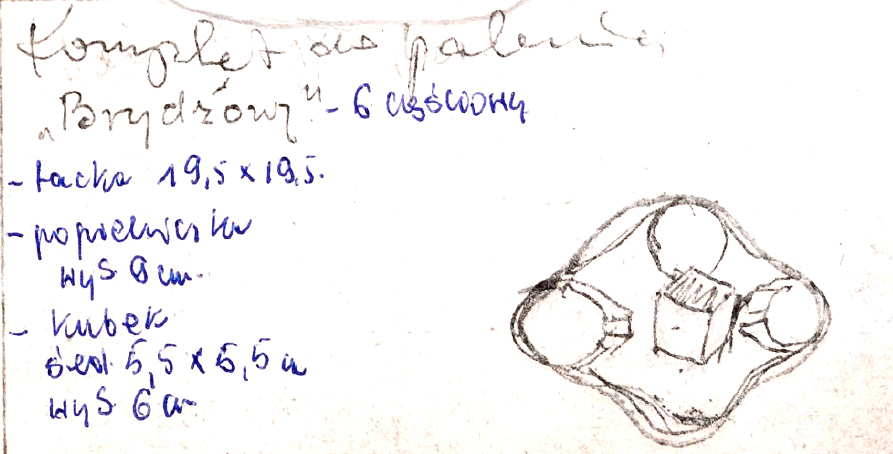 Komplet do palenia
„Brydżowy" - 6 częściowy
- tacka 19,5 x 19,5.
- popielniczka
wys 9 cm.
- kubek
śred 5,5 x 5,5 c
wys 6 cm